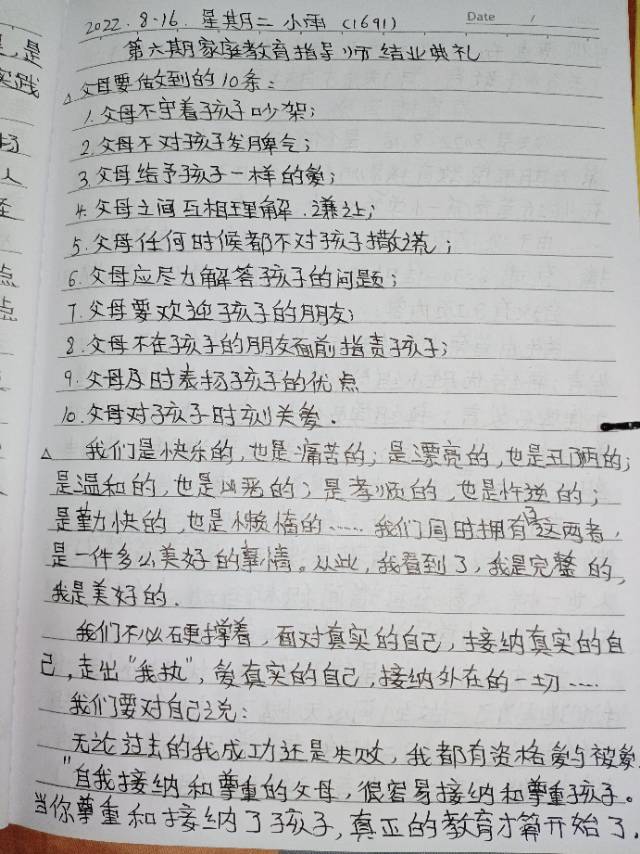 2022.8.16. 星期二 小雨 (1691)
Date /
第六期家庭教育指导师结业典礼
△父母要做到的10条:
1.父母不守着孩子吵架;
2.父母不对孩子发脾气;
3.父母给予孩子一样的爱;
4.父母之间互相理解.谦让;
5.父母任何时候都不对孩子撒谎;
6.父母应尽力解答孩子的问题;
7.父母要欢迎孩子的朋友;
8.父母不在孩子的朋友面前指责孩子;
9.父母及时表扬孩子的优点
10.父母对孩子时刻关爱.
△ 我们是快乐的,也是痛苦的;是漂亮的,也是丑陋的;
是温和的,也是凶恶的;是孝顺的,也是忤逆的;
是勤快的,也是懒惰的……我们同时拥有了这两者,
是一件多么美好的事情。从此,我看到了,我是完整的,
我是美好的.
我们不必硬撑着,面对真实的自己,接纳真实的自
己,走出"我执",爱真实的自己,接纳外在的一切……
我们要对自己说:
无论过去的我成功还是失败,我都有资格爱与被爱.
"自我接纳和尊重的父母,很容易接纳和尊重孩子。
当你尊重和接纳了孩子,真正的教育才算开始了.
是,是
实践
场
人
圣
点
点